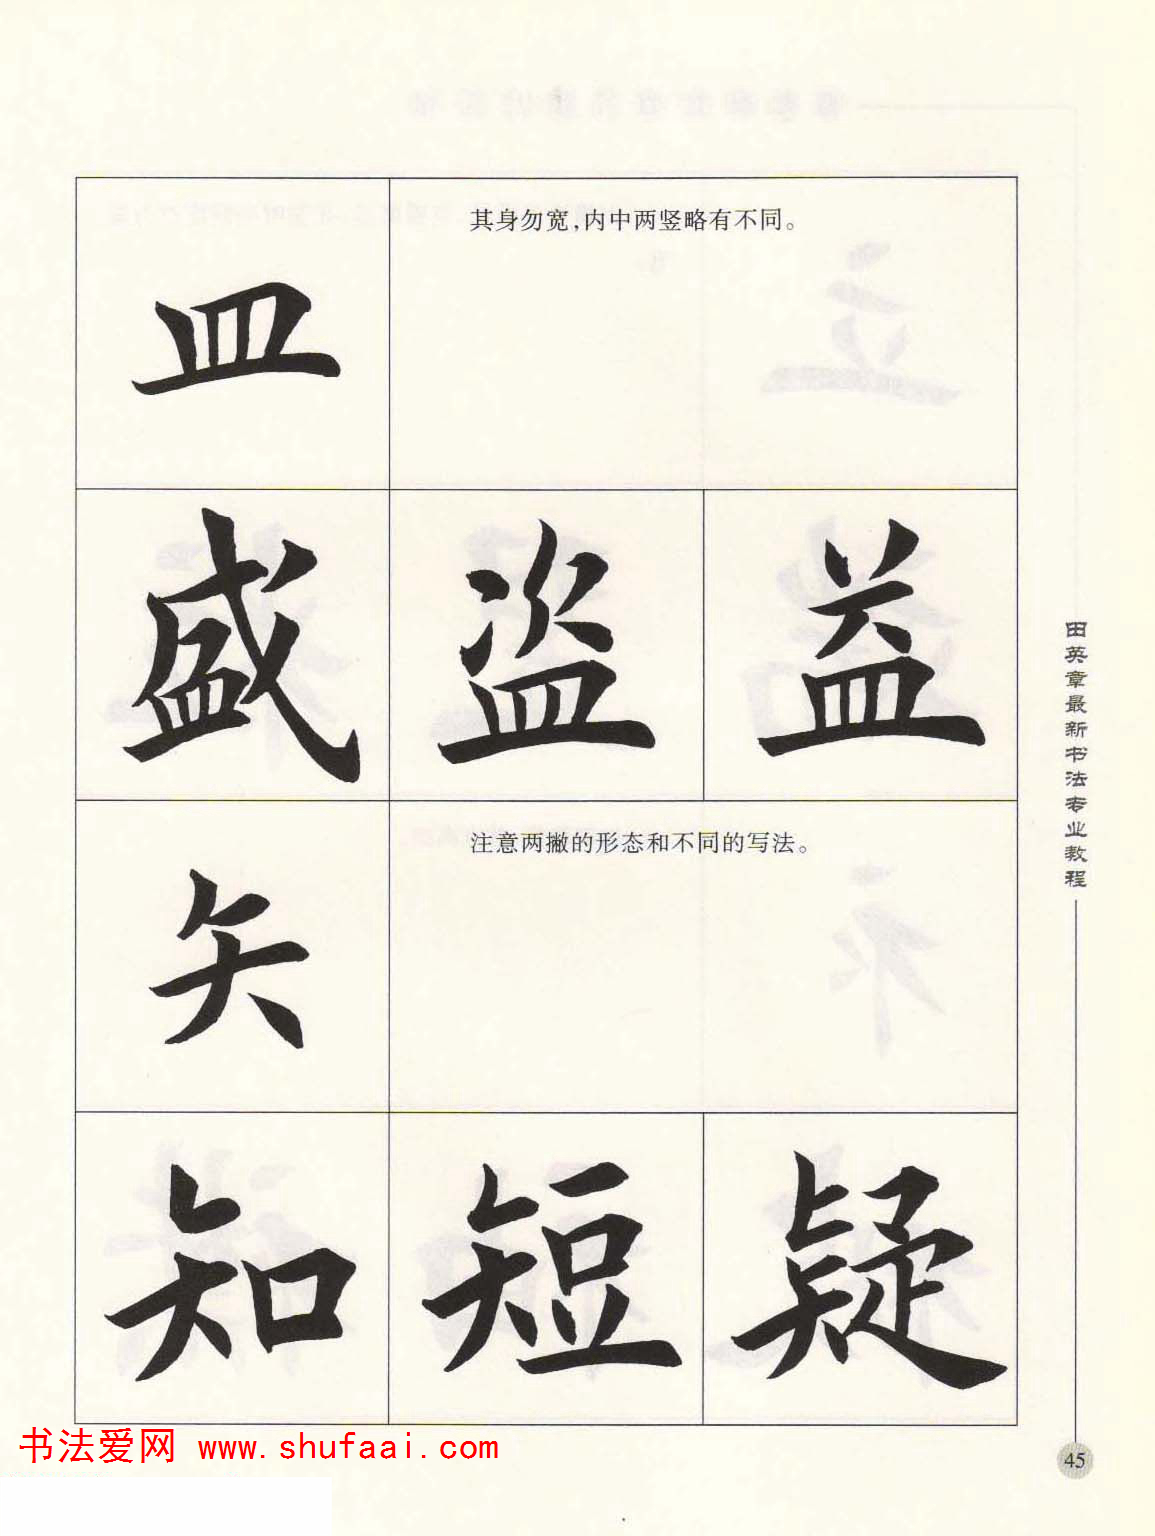 其身勿宽，内中两竖略有不同。
皿
盛 盗 益
注意两撇的形态和不同的写法。
矢
知 短 疑
田英章最新书法专业教程
45
书法爱网 www.shufaai.com